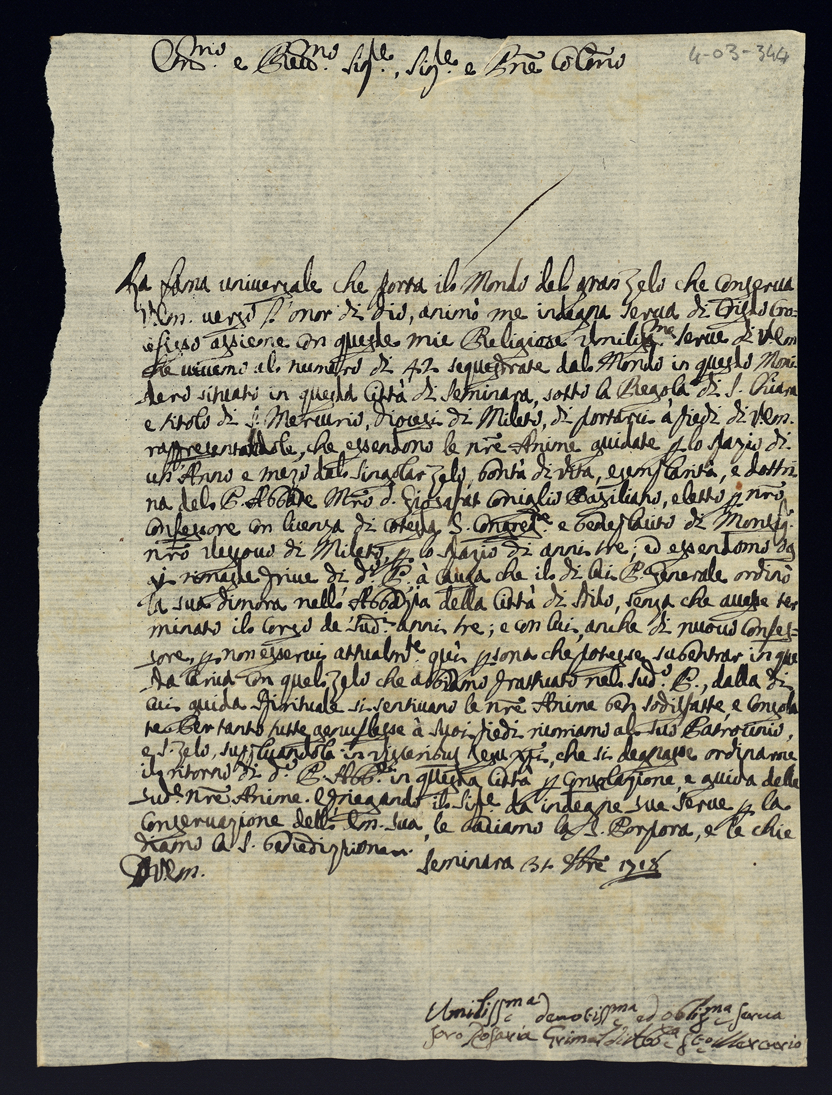 Em.mo e Rev.mo Sig.re, Sig.re e Prñe Col.mo
4-03-344
La fama universale che porta il Mondo del gran zelo che conserva
V. Em. verso l'onor di Dio, animò me indegna serva di Giesù Cro=
cifisso assieme con queste mie Religiose umilis.me serve di V. Em
che viviamo al numero di 42 sequestrate dal Mondo in questo Moni
stero situato in questa Città di Seminara, sotto la Regola di S. Chiara
e titolo di S. Mercurio, Diocesi di Mileto, di portarci a piedi di V. Em.
rappresentandole, che essendono le nr̃e Anime guidate p lo spazio di
un Anno e mezo dal singolar zelo, bontà di vita, esemplarità, e dottri
na del P. Abbate Mr̃o D. Giosafat Coniglio Basiliano, eletto p nr̃o
Confessore con licenza di cotesta S. Congreg.ne e beneplacito di Monsig.r
nr̃o Vescovo di Mileto, p lo spazio di anni tre; ed essendomo og
gi rimaste prive di d.o P. à causa che il di lui P. Generale ordinò
la sua dimora nell'Abbazia della Città di Stilo, senza che avesse ter
minato il corso de sud.i anni tre; e con lui anche di nuovo Confes=
sore, p non esservi attualm.te quì psona che potesse subentrar in que
sta carica con quel zelo che abbiamo praticato nel sud.o P., dalla di
cui guida spirituale si sentivano le nr̃e Anime ben sodisfatte, e consola
te. Per tanto tutte genuflesse à suoi piedi ricorriamo al suo Patrocinio,
e s. zelo, supplicandola in visceribus Jesu Xp̃i, che si degnasse ordinarne
il ritorno di d.o P. Abb.e in questa Città p consolazione, e guida delle
sud.e nr̃e Anime. E priegando il Sig.re da indegne sue serve p la
conservazione dell'Em. Sua, le baciamo la S. Porpora, e le chie
diamo la S. benedizzione.
D. V. Em. Seminara 31 Xbr̃e 1718
Umiliss.ma devotiss.ma ed obblig.ma serva
Soro Rosaria Grimaldi Abb.a S.to Mercurio